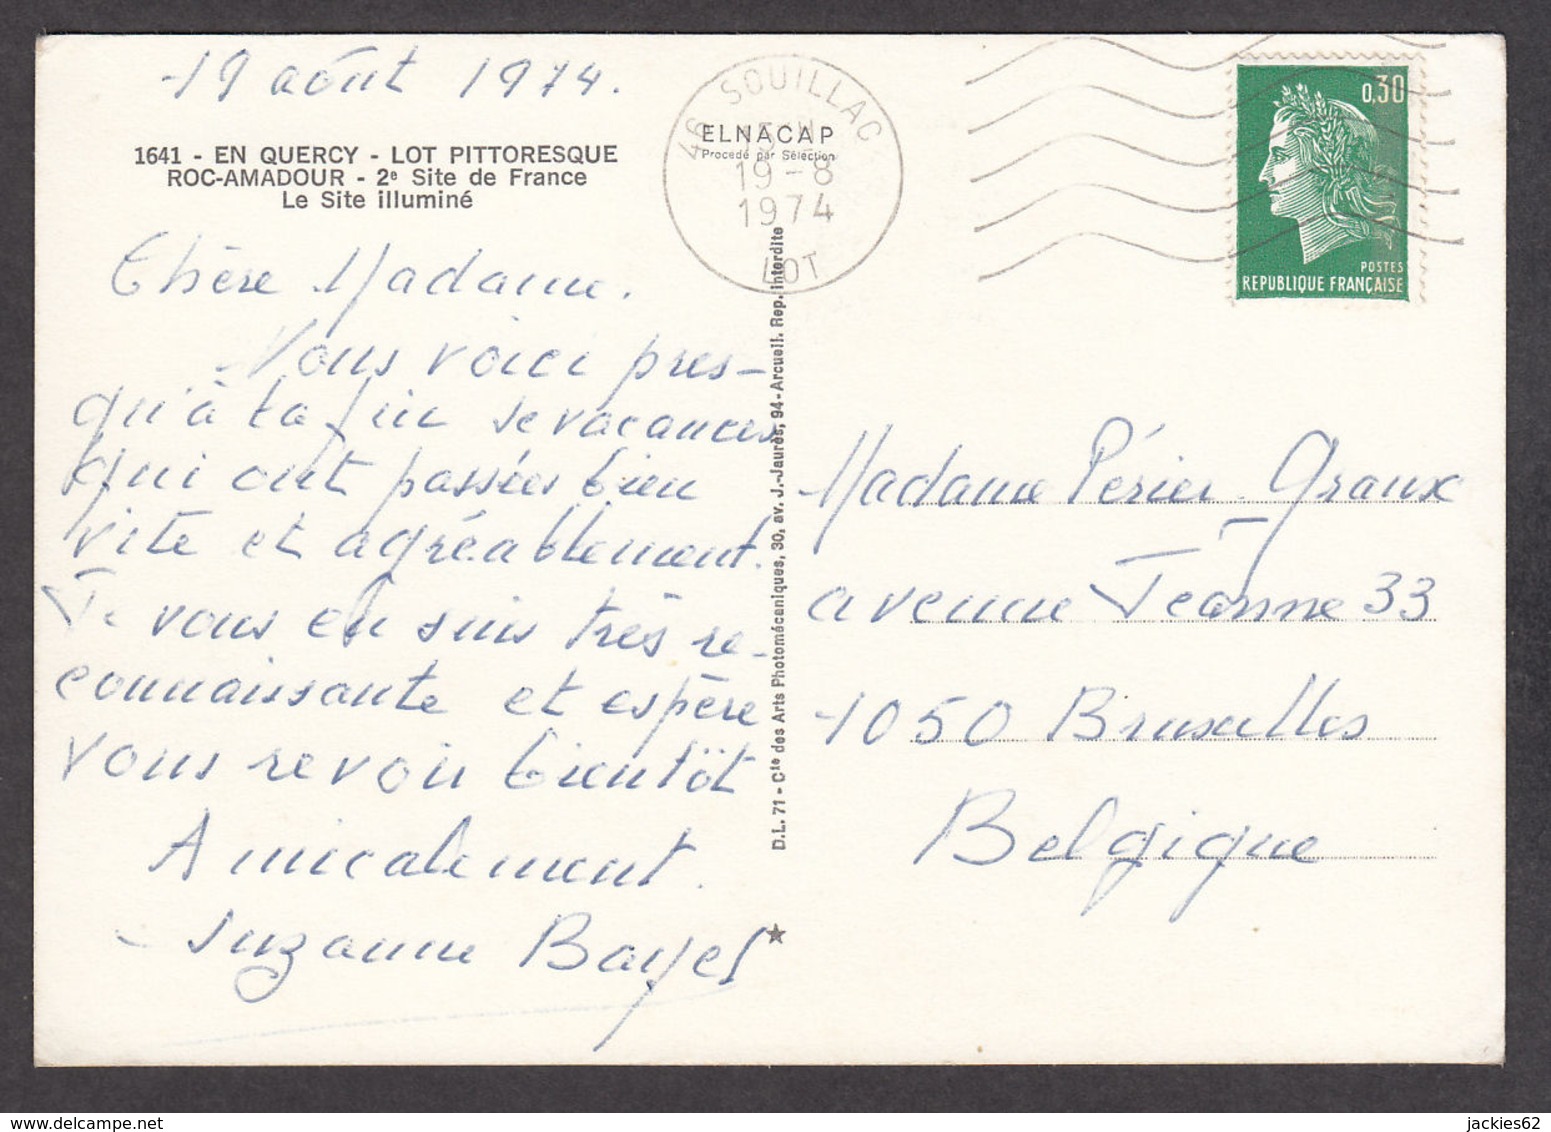 19 août 1974.
1641 - EN QUERCY - LOT PITTORESQUE
ROC-AMADOUR - 2e Site de France
Le Site illuminé
Chère Madame.
Nous voici pres-
qu'à la fin de vacances
qui ont passées bien
vite et agréablement.
Je vous en suis très re-
connaissante et espère
vous revoir bientôt
Amicalement.
Suzanne Bayet
46 SOUILLAC
19-8
1974
LOT
ELNACAP
Procédé par Sélection
D.L. 71 - Cte des Arts Photomécaniques, 30, av. J.-Jaurès, 94-Arcueil. Rep. interdite
0,30
POSTES
REPUBLIQUE FRANÇAISE
Madame Périer-Graux
avenue Jeanne 33
1050 Bruxelles
Belgique
delcampe.net
jackies62